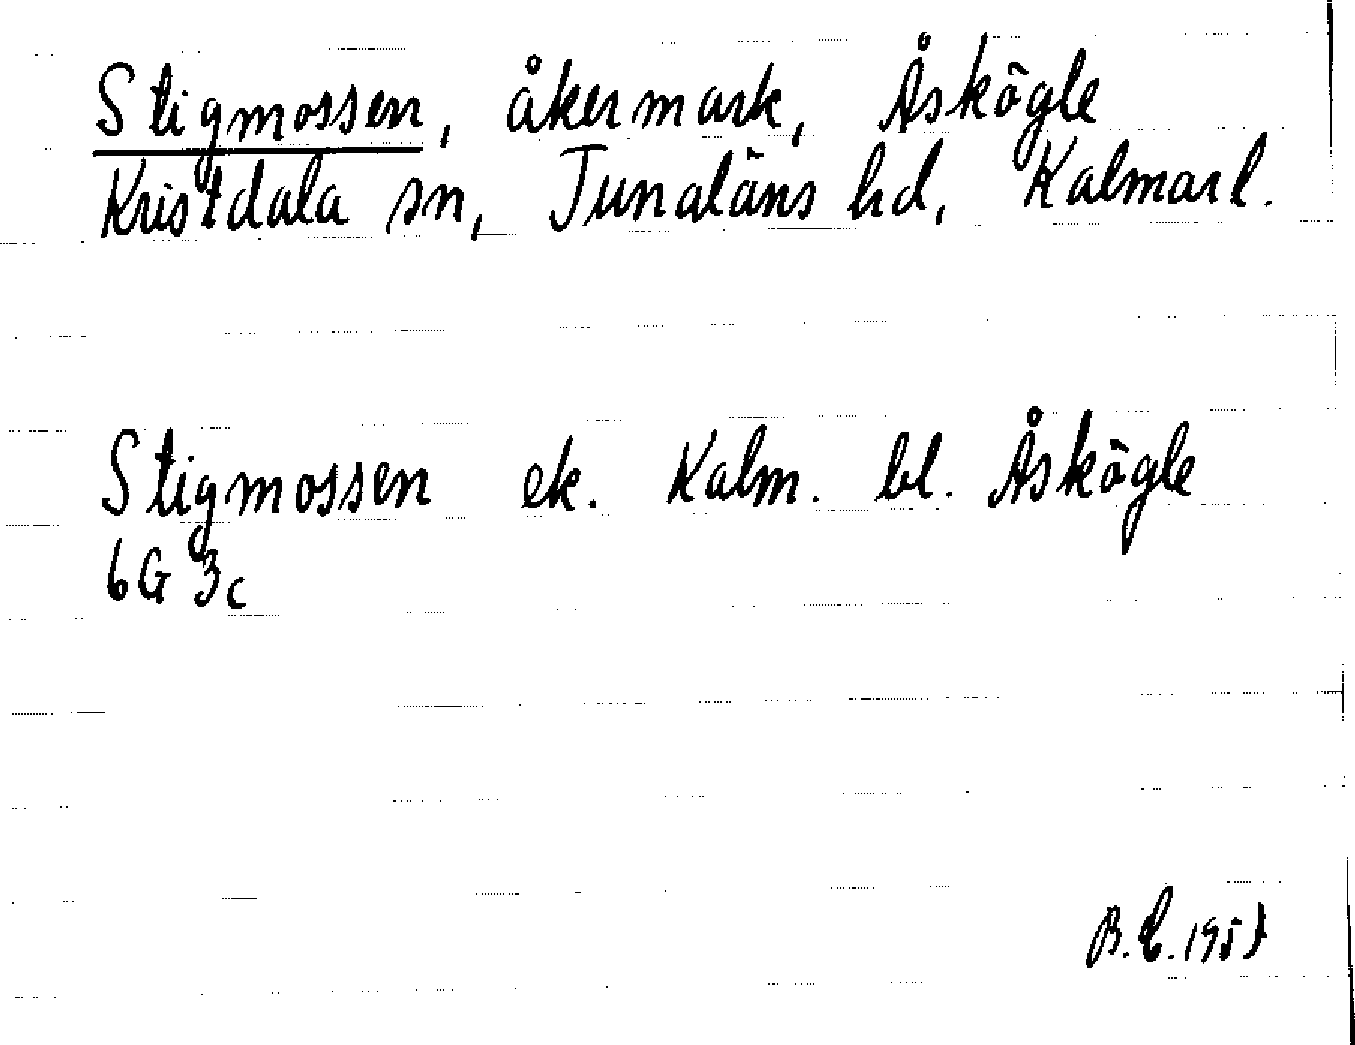 Stigmossen, åkermark, Åskögle
Kristdala sn, Tunaläns hd, Kalmar l.
Stigmossen ek. Kalm. bl. Åskögle
6G 3c
B.E. 1957